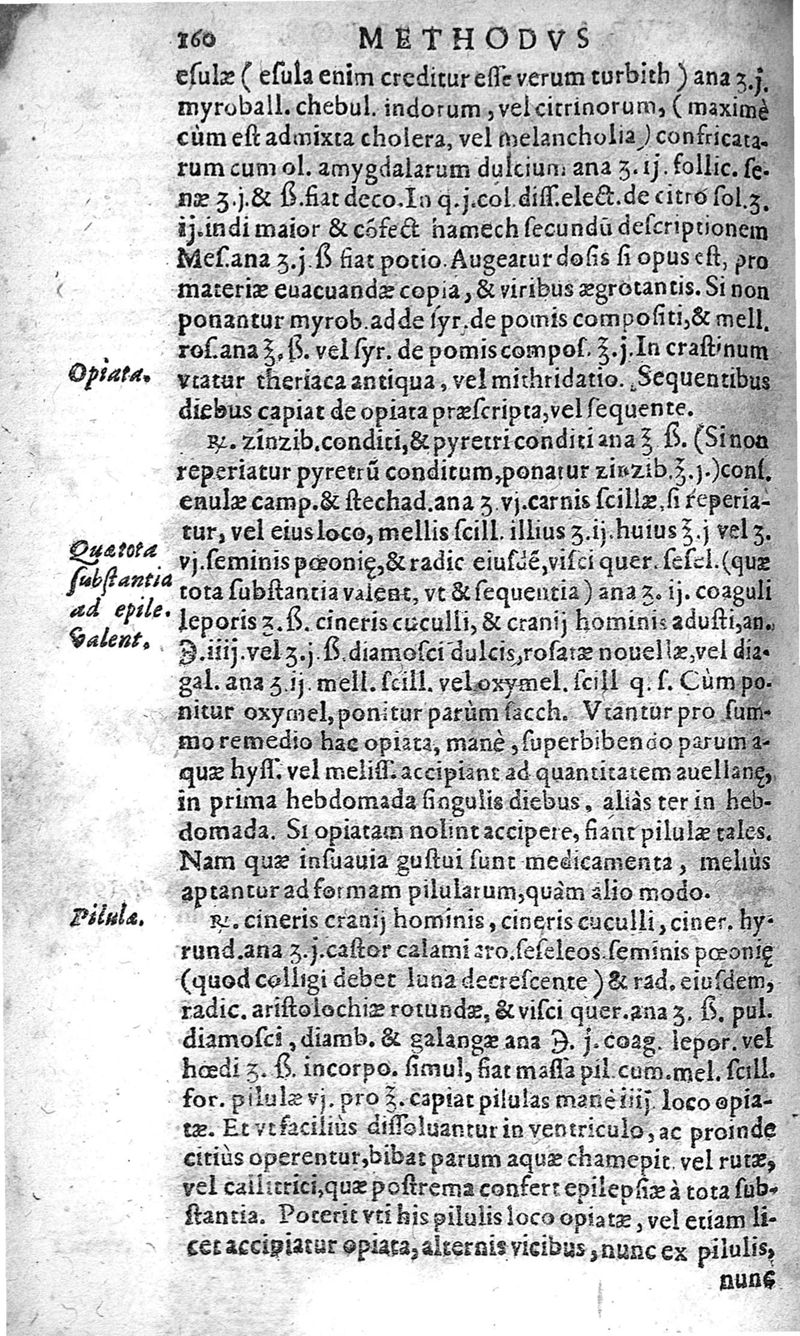 160 METHODVS
esulæ ( esula enim creditur esse verum turbith ) ana ʒ.j.
myroball. chebul. indorum, vel citrinorum, ( maximè
cùm est admixta cholera, vel melancholia ) confricata-
rum cum ol. amygdalarum dulcium ana ʒ. ij. follic. se-
næ ʒ.j.& ß.fiat deco.In q.j.col.diss.elect.de citro sol.ʒ.
ij.indi maior & cõfect hamech secundũ descriptionem
Mes.ana ʒ.j.ß fiat potio.Augeatur dosis si opus est, pro
materiæ euacuandæ copia, & viribus ægrotantis. Si non
ponantur myrob.adde syr.de pomis compositi,& mell.
ros.ana ℥. ß. vel syr. de pomis compos. ℥.j.In crastinum
Opiata.
vtatur theriaca antiqua, vel mithridatio. Sequentibus
diebus capiat de opiata præscripta, vel sequente.
℞. zinzib.conditi,& pyretri conditi ana ℥ ß. (Si non
reperiatur pyretrũ conditum,ponatur zinzib.℥.j.)cons.
enulæ camp.& stechad.ana ʒ.vj.carnis scillæ, si reperia-
tur, vel eius loco, mellis scill. illius ʒ.ij.huius ℥.j vel ʒ.
Quæ tota
substantia
ad epile.
valent.
vj.seminis pœonię,& radic eiusdẽ,visci quer. sesel.(quæ
tota substantia valent, vt & sequentia) ana ʒ. ij. coaguli
leporis ʒ.ß. cineris cuculli, & cranij hominis adusti,an.
℈.iiij.vel ʒ.j.ß.diamosci dulcis,rosatæ nouellæ,vel dia-
gal. ana ʒ.ij. mell. scill. vel oxymel. scill q. s. Cùm po-
nitur oxymel,ponitur parùm sacch. Vtantur pro sum-
mo remedio hac opiata, manè, superbibendo parum a-
quæ hyss. vel meliss. accipiant ad quantitatem auellanę,
in prima hebdomada singulis diebus, aliàs ter in heb-
domada. Si opiatam nolint accipere, fiant pilulæ tales.
Nam quæ insuauia gustui sunt medicamenta, meliùs
aptantur ad formam pilularum,quàm alio modo.
Pilulæ.
℞. cineris cranij hominis, cineris cuculli, ciner. hy-
rund.ana ʒ.j.castor calami aro.seseleos.seminis pœonię
(quod colligi debet luna decrescente) & rad. eiusdem,
radic. aristolochiæ rotundæ, & visci quer.ana ʒ. ß. pul.
diamosci, diamb. & galangæ ana ℈. j. coag. lepor. vel
hœdi ʒ. ß. incorpo. simul, fiat massa pil. cum.mel. scill.
for. pilulæ vj. pro ʒ. capiat pilulas manè iiij. loco opia-
tæ. Et vt faciliùs dissoluantur in ventriculo, ac proinde
citiùs operentur,bibat parum aquæ chamepit. vel rutæ,
vel callitrici,quæ postrema confert epilepsiæ à tota sub-
stantia. Poterit vti his pilulis loco opiatæ, vel etiam li-
cet accipiatur opiata, alternis vicibus, nunc ex pilulis,
nunc